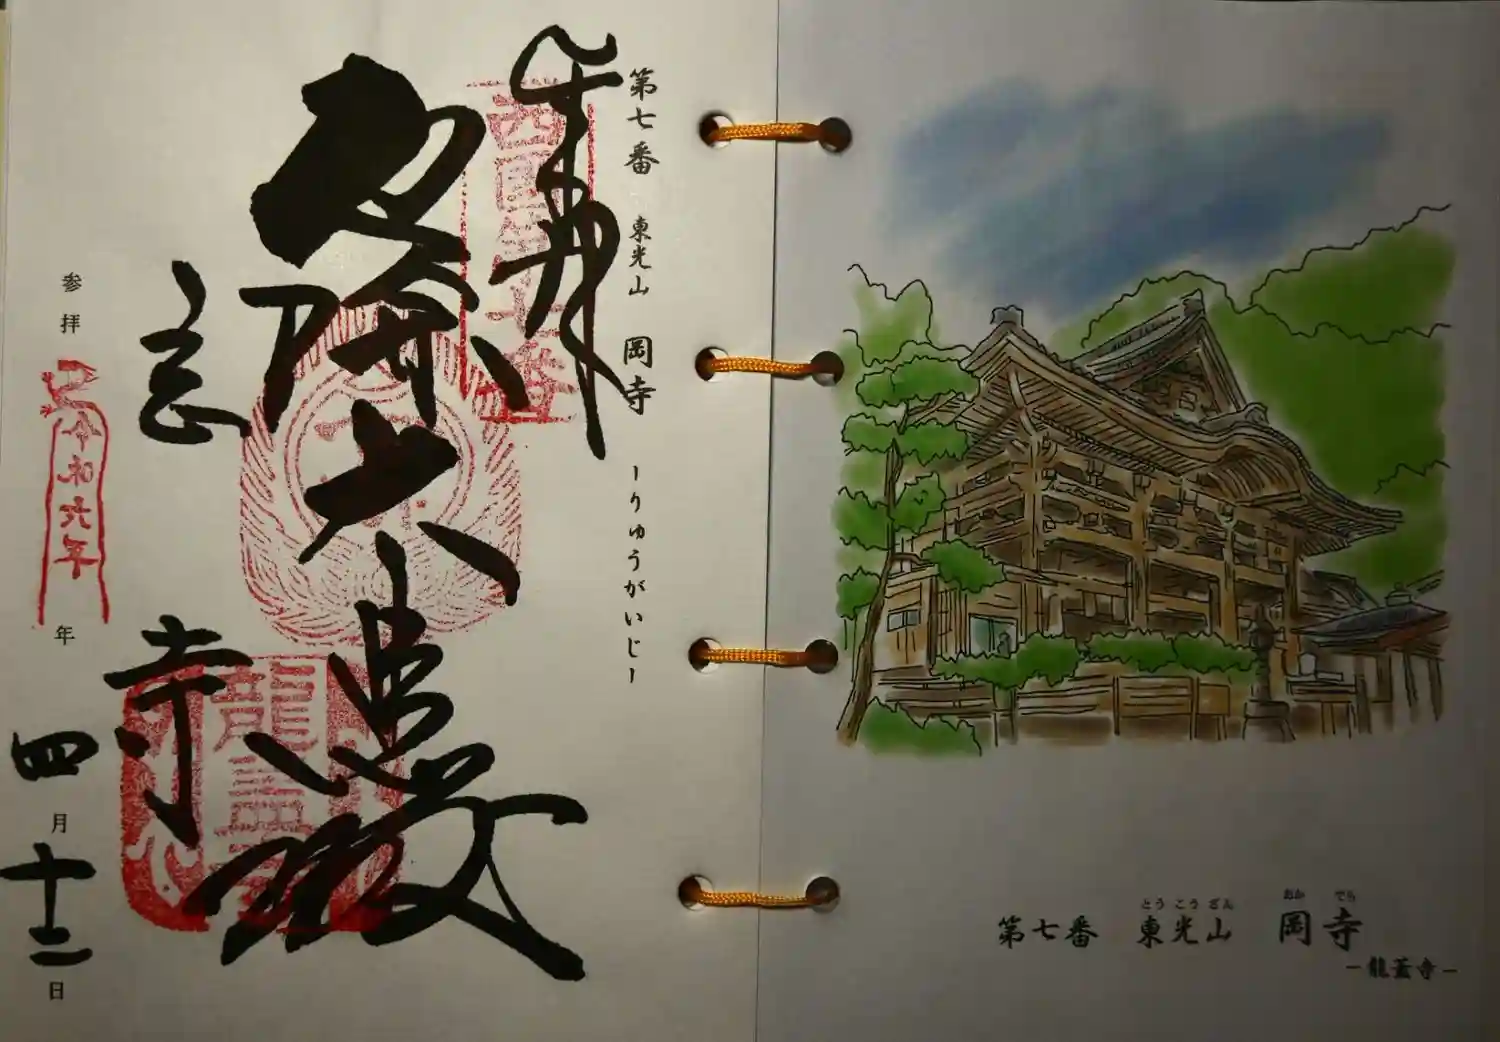 第七番 東光山 岡寺 ーりゅうがいじー
奉拝
西国第七番
厄除大悲殿
龍蓋寺
参拝
令和六年
年
四月十二日
第七番 東光山 岡寺
とうこうざん おかでら
ー龍蓋寺ー